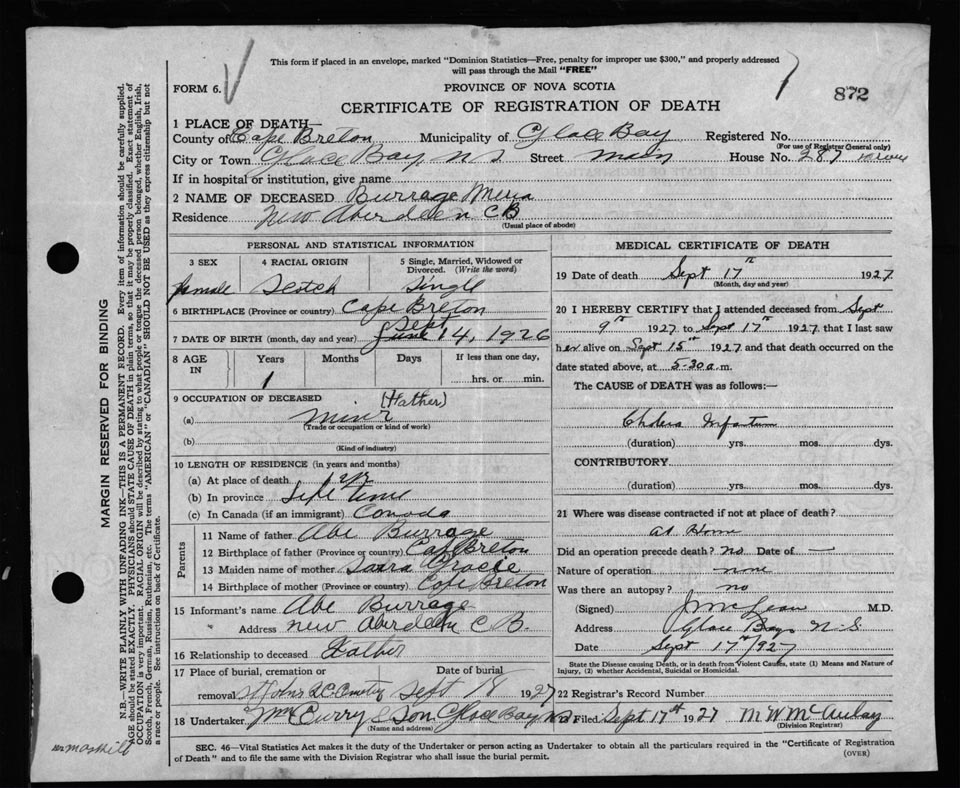 This form if placed in an envelope, marked "Dominion Statistics—Free, penalty for improper use $300," and properly addressed
will pass through the Mail "FREE"
FORM 6.
PROVINCE OF NOVA SCOTIA
872
CERTIFICATE OF REGISTRATION OF DEATH
1 PLACE OF DEATH—
County of Cape Breton Municipality of Glace Bay Registered No.
(For use of Registrar General only)
City or Town Glace Bay, N.S. Street Main House No. 287
If in hospital or institution, give name
2 NAME OF DECEASED Burrage
Residence New Aberdeen CB
(Usual place of abode)
PERSONAL AND STATISTICAL INFORMATION
3 SEX 4 RACIAL ORIGIN 5 Single, Married, Widowed or
Divorced. (Write the word)
female Scotch Single
6 BIRTHPLACE (Province or country) Cape Breton
Sept
7 DATE OF BIRTH (month, day and year) June 14, 1926
8 AGE IN Years Months Days If less than one day,
1 hrs. or min.
9 OCCUPATION OF DECEASED (Father)
(a) Miner
(Trade or occupation or kind of work)
(b)
(Kind of industry)
10 LENGTH OF RESIDENCE (in years and months)
(a) At place of death 1 yr
(b) In province Life time
(c) In Canada (if an immigrant) Canada
Parents
11 Name of father Abe Burrage
12 Birthplace of father (Province or country) Cape Breton
13 Maiden name of mother Gracie
14 Birthplace of mother (Province or country) Cape Breton
15 Informant's name Abe Burrage
" Address New Aberdeen C B.
16 Relationship to deceased Father
17 Place of burial, cremation or Date of burial
removal St Johns Sept 18 1927
18 Undertaker Wm Curry & Son Glace Bay NS
(Name and address)
MEDICAL CERTIFICATE OF DEATH
19 Date of death Sept 17th 1927
(Month, day and year)
20 I HEREBY CERTIFY that I attended deceased from Sept
9th 1927 to Sept 17th 1927, that I last saw
her alive on Sept 15th 1927 and that death occurred on the
date stated above, at 5-30 a.m.
The CAUSE of DEATH was as follows:—
Cholera Infantum
(duration) yrs. mos. dys.
CONTRIBUTORY
(duration) yrs. mos. dys.
21 Where was disease contracted if not at place of death?
at Home
Did an operation precede death? no Date of —
Nature of operation none
Was there an autopsy? no
(Signed) J McLean M.D.
Address Glace Bay N.S.
Date Sept 17th/927
State the Disease causing Death, or in death from Violent Causes, state (1) Means and Nature of
Injury, (2) whether Accidental, Suicidal or Homicidal.
22 Registrar's Record Number
23 Filed Sept 17th 1927 M W McAulay
(Division Registrar)
SEC. 46—Vital Statistics Act makes it the duty of the Undertaker or person acting as Undertaker to obtain all the particulars required in the "Certificate of Registration
of Death" and to file the same with the Division Registrar who shall issue the burial permit.
(OVER)
MARGIN RESERVED FOR BINDING
N.B.—WRITE PLAINLY WITH UNFADING INK—THIS IS A PERMANENT RECORD. Every item of information should be carefully supplied.
AGE should be stated EXACTLY. PHYSICIANS should STATE CAUSE OF DEATH in plain terms, so that it may be properly classified. Exact statement of
OCCUPATION is very important. RACIAL ORIGIN will be described by stating to what people or tongue the deceased person belonged, whether English, Irish,
Scotch, French, German, Russian, Ruthenian, etc. The terms "AMERICAN" or "CANADIAN" SHOULD NOT BE USED as they express citizenship but not
a race or people. See instructions on back of Certificate.